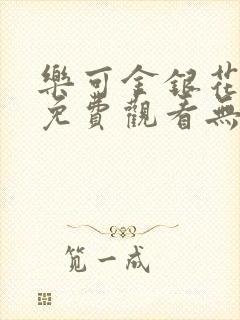 樂可金銀花
免費觀看無
笕一成